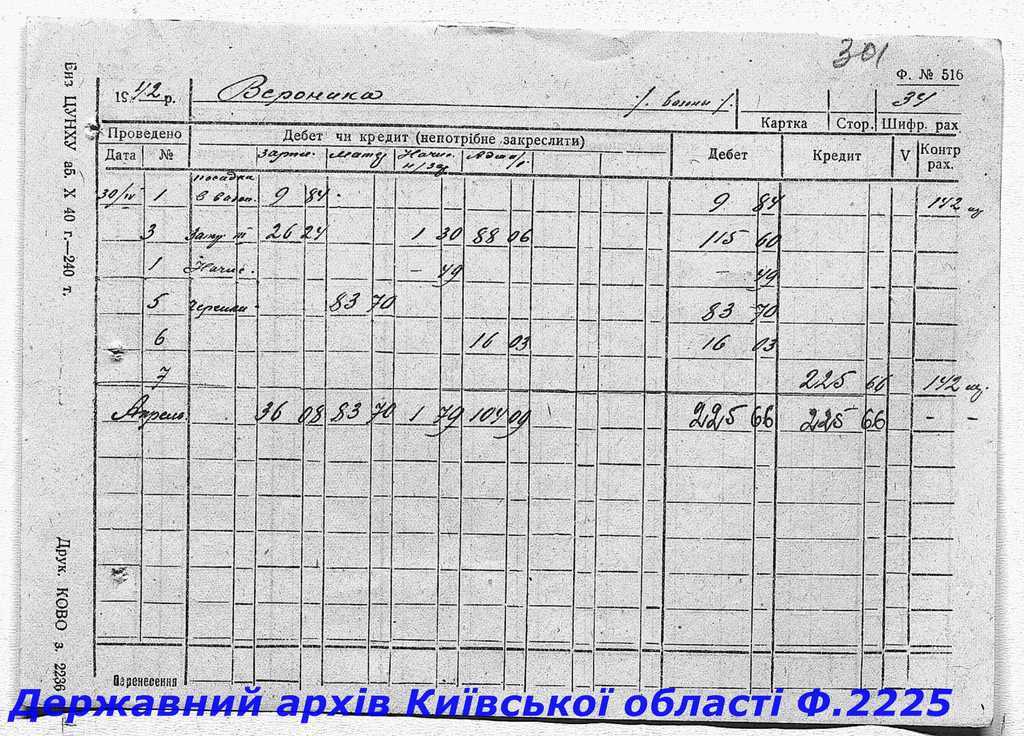 301
Ф. № 516
1942 р. Вероника /. ванни /. 34
Картка Стор. Шифр. рах
Проведено Дебет чи кредит (непотрібне закреслити)
Дата № зарпл. Мату Начис. Дебет Кредит V Контр рах.
посадка
30/IV 1 в 9 84 9 84 142
3 26 24 1 30 88 06 115 60
1 Начис. — 49 — 49
5 83 70 83 70
6 16 03 16 03
7 225 66 142
Апрель 36 08 83 70 1 79 104 09 225 66 225 66 — —
Перенесення
Биз ЦУНХУ аб. X 40 г.—240 т.
Друк. КОВО з. 2236
Державний архів Київської області Ф.2225